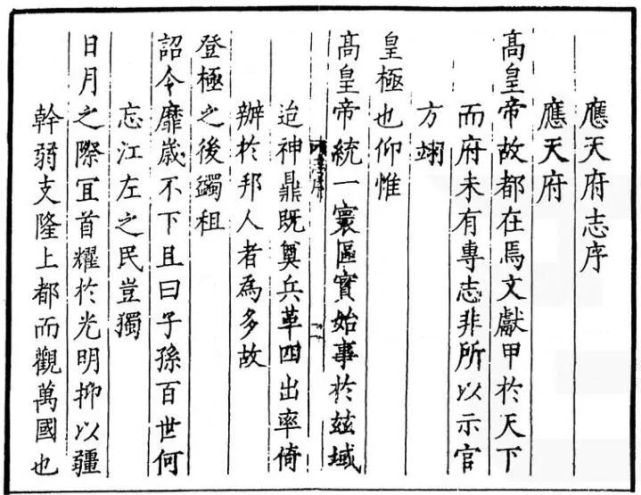 應天府志序
應天府
髙皇帝故都在焉文獻甲於天下
而府未有專志非所以示官
方翊
皇極也仰惟
髙皇帝統一寰區實始事於兹域
迨神鼎既奠兵革四出率倚
辦於邦人者為多故
登極之後蠲租
詔令靡歳不下且曰子孫百世何
忘江左之民豈獨
日月之際冝首耀於光明抑以疆
幹弱支隆上都而觀萬國也